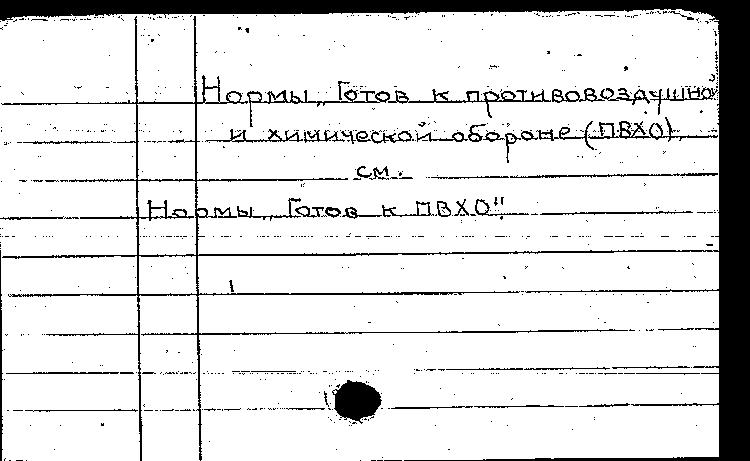 Нормы „Готов к противовоздушной
и химической обороне (ПВХО),
см.
Нормы „Готов к ПВХО".